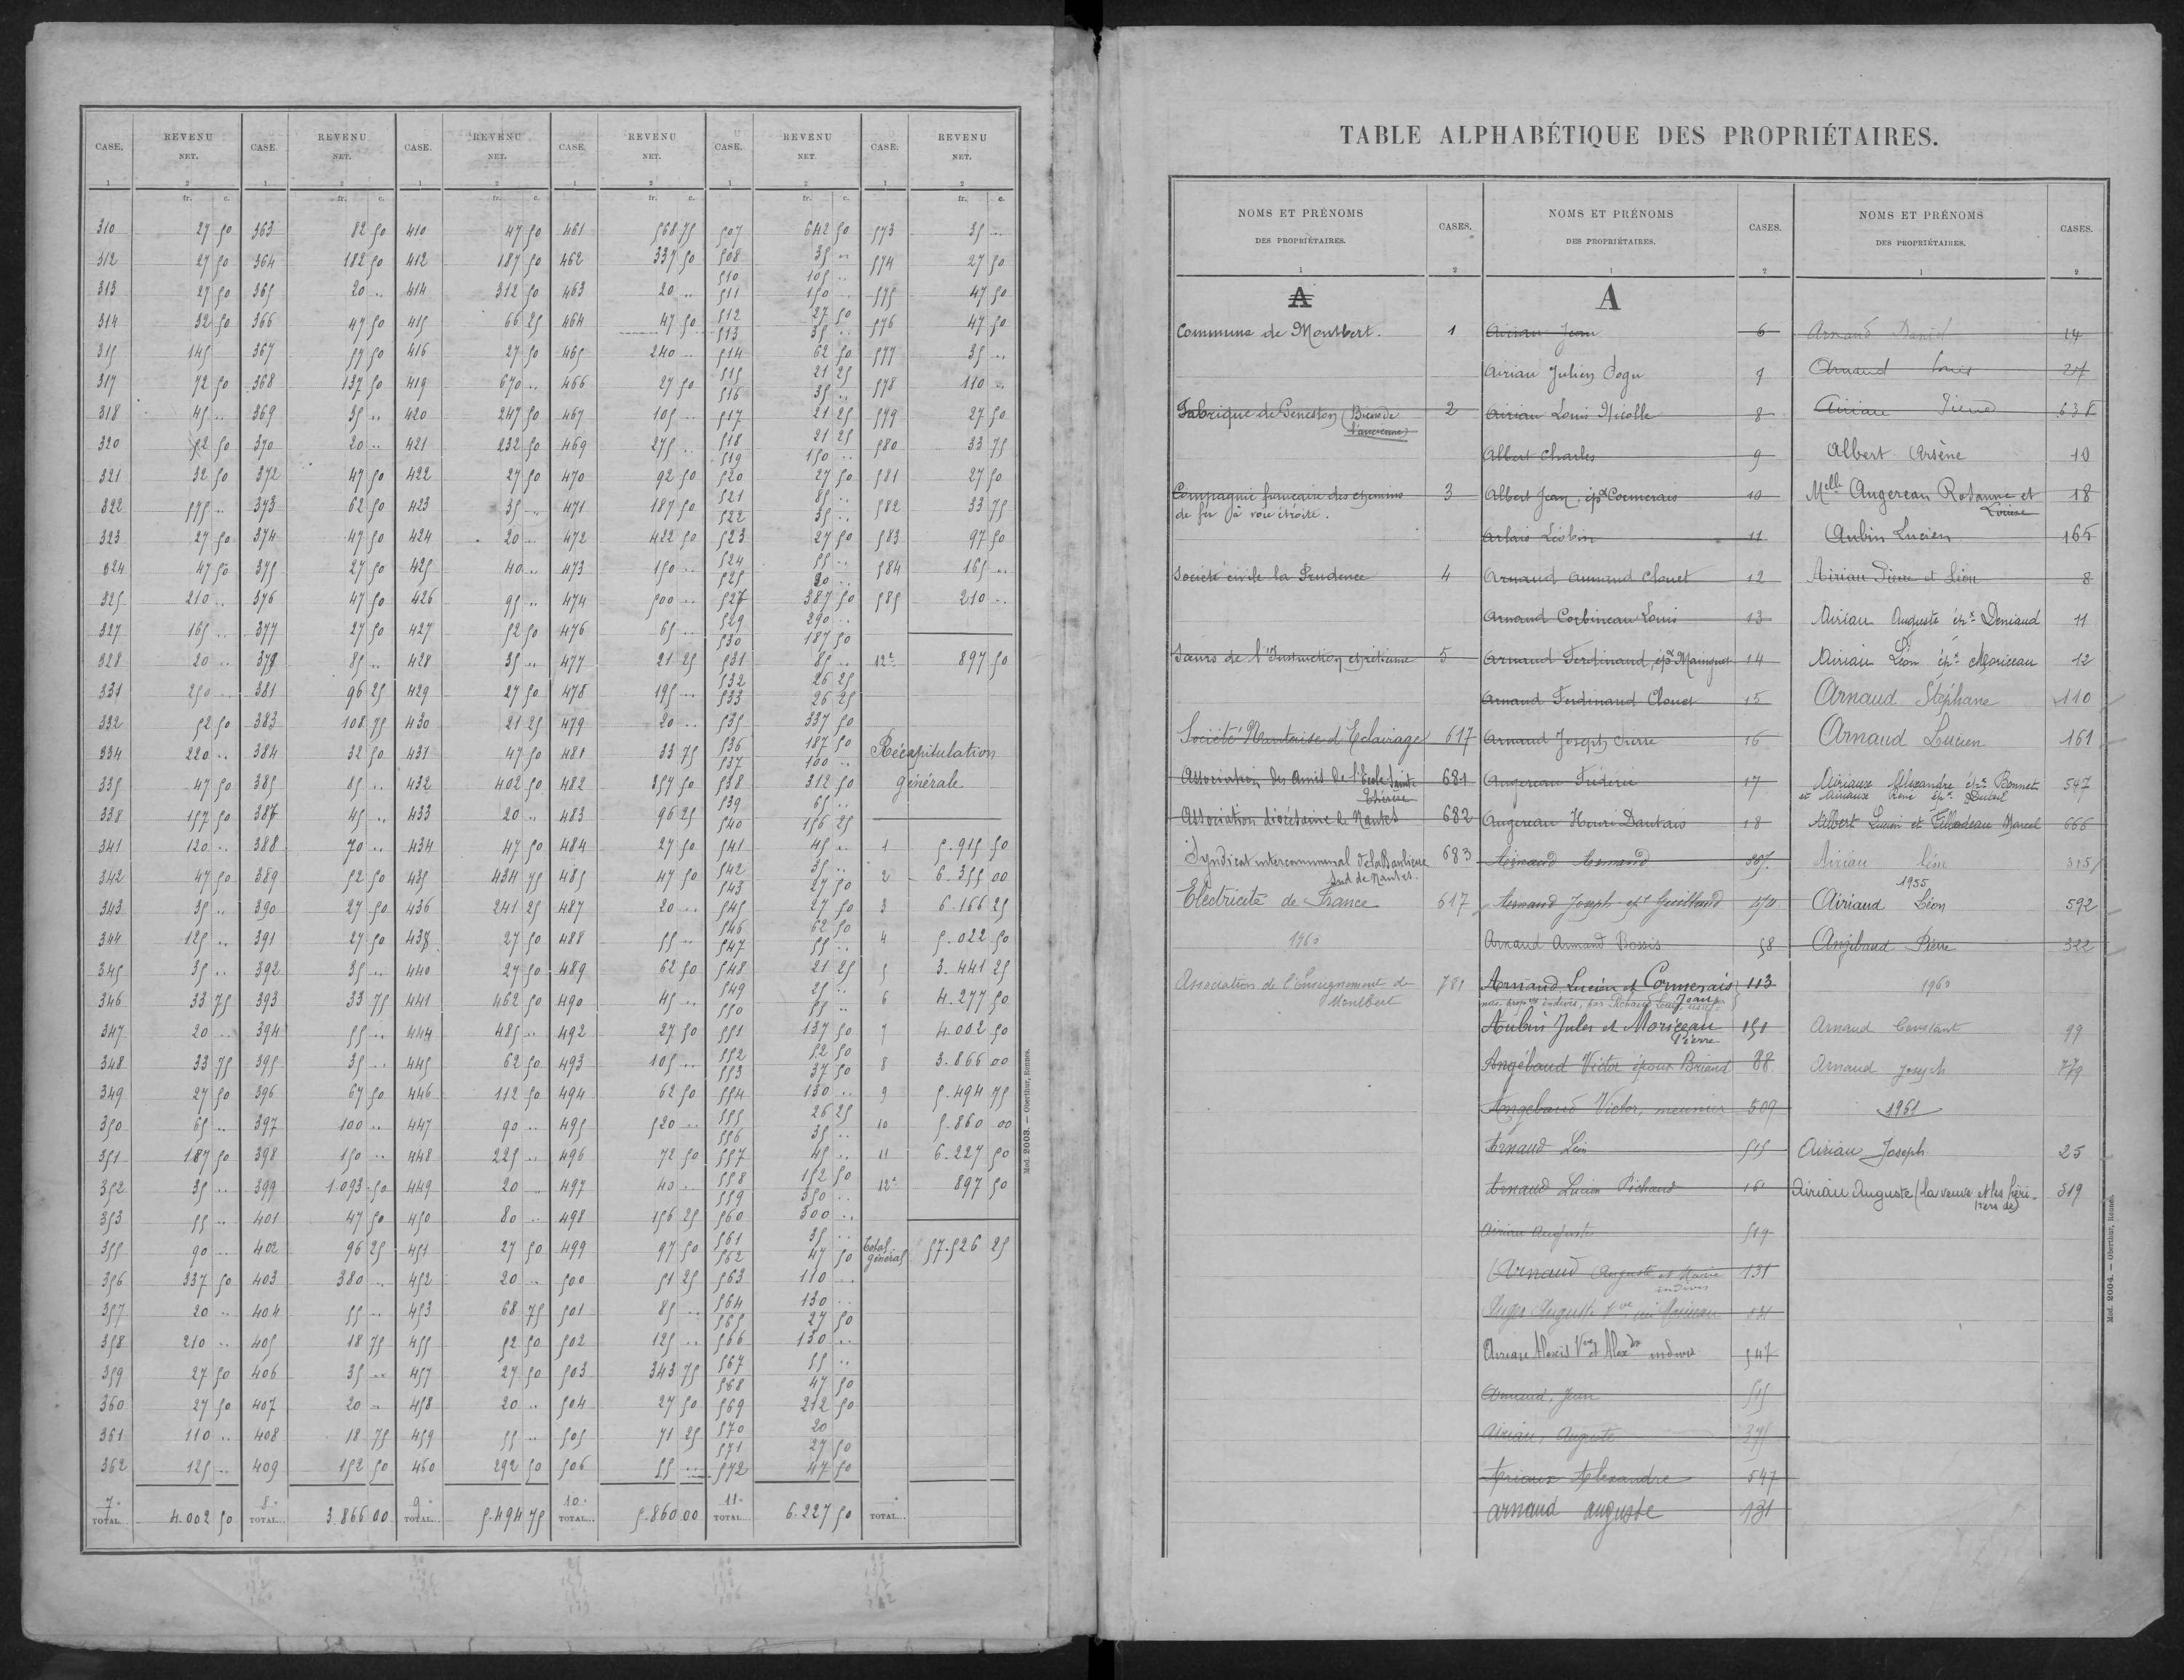 CASE. REVENU NET. CASE. REVENU NET. CASE. REVENU NET. CASE. REVENU NET. CASE. REVENU NET. CASE. REVENU NET.
1 2 1 2 1 2 1 2 1 2 1 2
fr. c. fr. c. fr. c. fr. c. fr. c. fr. c.
310 27 50 363 82 50 410 47 50 461 568 75 507 642 50 573 35 ..
312 27 50 364 182 50 412 187 50 462 337 50 508 35 .. 574 27 50
510 105 ..
313 27 50 365 20 .. 414 312 50 463 20 .. 511 150 .. 575 47 50
314 32 50 366 47 50 415 66 25 464 47 50 512 27 50 576 47 50
513 35 ..
315 145 367 57 50 416 27 50 465 240 .. 514 62 50 577 35 ..
317 72 50 368 137 50 419 670 .. 466 27 50 515 21 25 578 110 ..
516 35 ..
318 45 .. 369 35 .. 420 247 50 467 105 .. 517 21 25 579 27 50
320 52 50 370 20 .. 421 232 50 469 275 .. 518 21 25 580 33 75
519 150 ..
321 32 50 372 47 50 422 27 50 470 92 50 520 27 50 581 27 50
322 575 .. 373 62 50 423 35 .. 471 187 50 521 85 .. 582 33 75
522 35 ..
323 27 50 374 47 50 424 20 .. 472 422 50 523 27 50 583 97 50
324 47 50 375 27 50 425 40 .. 473 150 .. 524 55 .. 584 165 ..
525 20 ..
325 210 .. 376 47 50 426 95 .. 474 500 .. 527 387 50 585 210 ..
327 165 .. 377 27 50 427 52 50 476 65 .. 529 290 ..
530 187 50
328 20 .. 379 85 .. 428 35 .. 477 21 25 531 85 .. 12e 897 50
532 26 25
331 250 .. 381 96 25 429 27 50 478 195 .. 533 26 25
332 52 50 383 108 75 430 21 25 479 20 .. 535 337 50
334 220 .. 384 32 50 431 47 50 481 33 75 536 187 50 Récapitulation
537 100 ..
335 47 50 385 85 .. 432 402 50 482 357 50 538 312 50 générale
338 157 50 387 45 .. 433 20 .. 483 96 25 539 65 ..
540 156 25
341 120 .. 388 70 .. 434 47 50 484 27 50 541 45 .. 1 5.915 50
342 47 50 389 52 50 435 434 75 485 47 50 542 35 .. 2 6.355 00
543 27 50
343 35 .. 390 27 50 436 241 25 487 20 .. 545 27 50 3 6.166 25
344 125 .. 391 27 50 438 27 50 488 55 .. 546 62 50 4 5.022 50
547 55 ..
345 35 .. 392 35 .. 440 27 50 489 62 50 548 21 25 5 3.441 25
346 33 75 393 33 75 441 462 50 490 45 .. 549 25 .. 6 4.277 50
550 55 ..
347 20 .. 394 55 .. 444 485 .. 492 27 50 551 137 50 7 4.002 50
348 33 75 395 35 .. 445 62 50 493 105 .. 552 52 50 8 3.866 00
553 37 50
349 27 50 396 67 50 446 112 50 494 62 50 554 130 .. 9 5.494 75
350 65 .. 397 100 .. 447 90 .. 495 520 .. 555 26 25 10 5.860 00
556 35 ..
351 187 50 398 150 .. 448 225 .. 496 72 50 557 45 .. 11 6.227 50
352 35 .. 399 1.093 50 449 20 .. 497 40 .. 558 152 50 12e 897 50
559 350 ..
353 55 .. 401 47 50 450 80 .. 498 156 25 560 300 ..
355 90 .. 402 96 25 451 27 50 499 97 50 561 35 .. Total général 57.526 25
562 47 50
356 337 50 403 380 .. 452 20 .. 500 51 25 563 110 ..
357 20 .. 404 55 .. 453 68 75 501 85 .. 564 130 ..
565 27 50
358 210 .. 405 18 75 455 52 50 502 125 .. 566 130 ..
359 27 50 406 35 .. 457 27 50 503 343 75 567 55 ..
568 47 50
360 27 50 407 20 .. 458 20 .. 504 27 50 569 212 50
361 110 .. 408 18 75 459 55 .. 505 71 25 570 20
571 27 50
362 125 .. 409 152 50 460 292 50 506 55 .. 572 47 50
7e TOTAL.. 4.002 50 8e TOTAL.. 3.866 00 9e TOTAL.. 5.494 75 10e TOTAL.. 5.860 00 11e TOTAL.. 6.227 50 TOTAL..
Mod. 2003. — Oberthur, Rennes.
TABLE ALPHABÉTIQUE DES PROPRIÉTAIRES.
NOMS ET PRÉNOMS DES PROPRIÉTAIRES. CASES. NOMS ET PRÉNOMS DES PROPRIÉTAIRES. CASES. NOMS ET PRÉNOMS DES PROPRIÉTAIRES. CASES.
1 2 1 2 1 2
A
Commune de Montbert. 1
Fabrique de Geneston (Biens de l'ancienne) 2
Compagnie française des chemins 3
de fer à voie étroite.
Société civile la Prudence 4
Sœurs de l'Instruction chrétienne 5
Société Nantaise d'Eclairage 617
Association des Amis de l'Ecole Sainte 681
Thérèse
Association diocésaine de Nantes 682
Syndicat intercommunal de la Banlieue 683
Sud de Nantes.
Electricité de France 617
1960
Association de l'Enseignement de 781
Montbert
A
Airiau Jean 6
Airiau Julien Cogu 7
Airiau Louis Nicolle 8
Albert Charles 9
Albert Jean, épx Cormerais 10
Arbais Léobin 11
Arnaud Armand Clouet 12
Arnaud Corbineau Louis 13
Arnaud Ferdinand, épx Mainguet 14
Arnaud Ferdinand Clouet 15
Arnaud Joseph Pierre 16
Augereau Frédéric 17
Augereau Henri Dautais 18
Arnaud Armand 507
Arnaud Joseph épx Guilbaud 574
Arnaud Armand Bossis 58
Arnaud Lucien et Cormerais Jean 113
Aubin Jules et Moriceau 151
Pierre
Angebaud Victor époux Briand 88
Angebaud Victor, meunier 509
Arnaud Léon 515
Arnaud Lucien Pichaud 161
Airiau Auguste 519
Arnaud Auguste et Marie 131
indivis
Auguste Vve née 531
Airiau Alexis Vve et Alexdre indivis 547
Arnaud, Jean 515
Airiau, Auguste 375
Airiaux Alexandre 547
Arnaud Auguste 131
Arnaud Daniel 14
Arnaud Louis 27
Airiau Pierre 638
Albert Arsène 10
Melle Augereau Rosanne et 18
Louise
Aubin Lucien 165
Airiau Pierre et Léon 8
Airiau Auguste épx Deniaud 11
Airiau Léon épx Moriceau 12
Arnaud Stéphane 110
Arnaud Lucien 161
Airiaux Alexandre épx Bonnet 547
et Airiaux René épx Dubeil
Albert Lucien et Filladeau Marcel 666
Airiau Léon 315
1955
Airiaud Léon 592
Angebaud Pierre 322
1960
Arnaud Constant 99
Arnaud Joseph 779
1961
Airiau Joseph 25
Airiau Auguste (la veuve et les héri- 519
tiers de)
Mod. 2004. — Oberthur, Rennes.